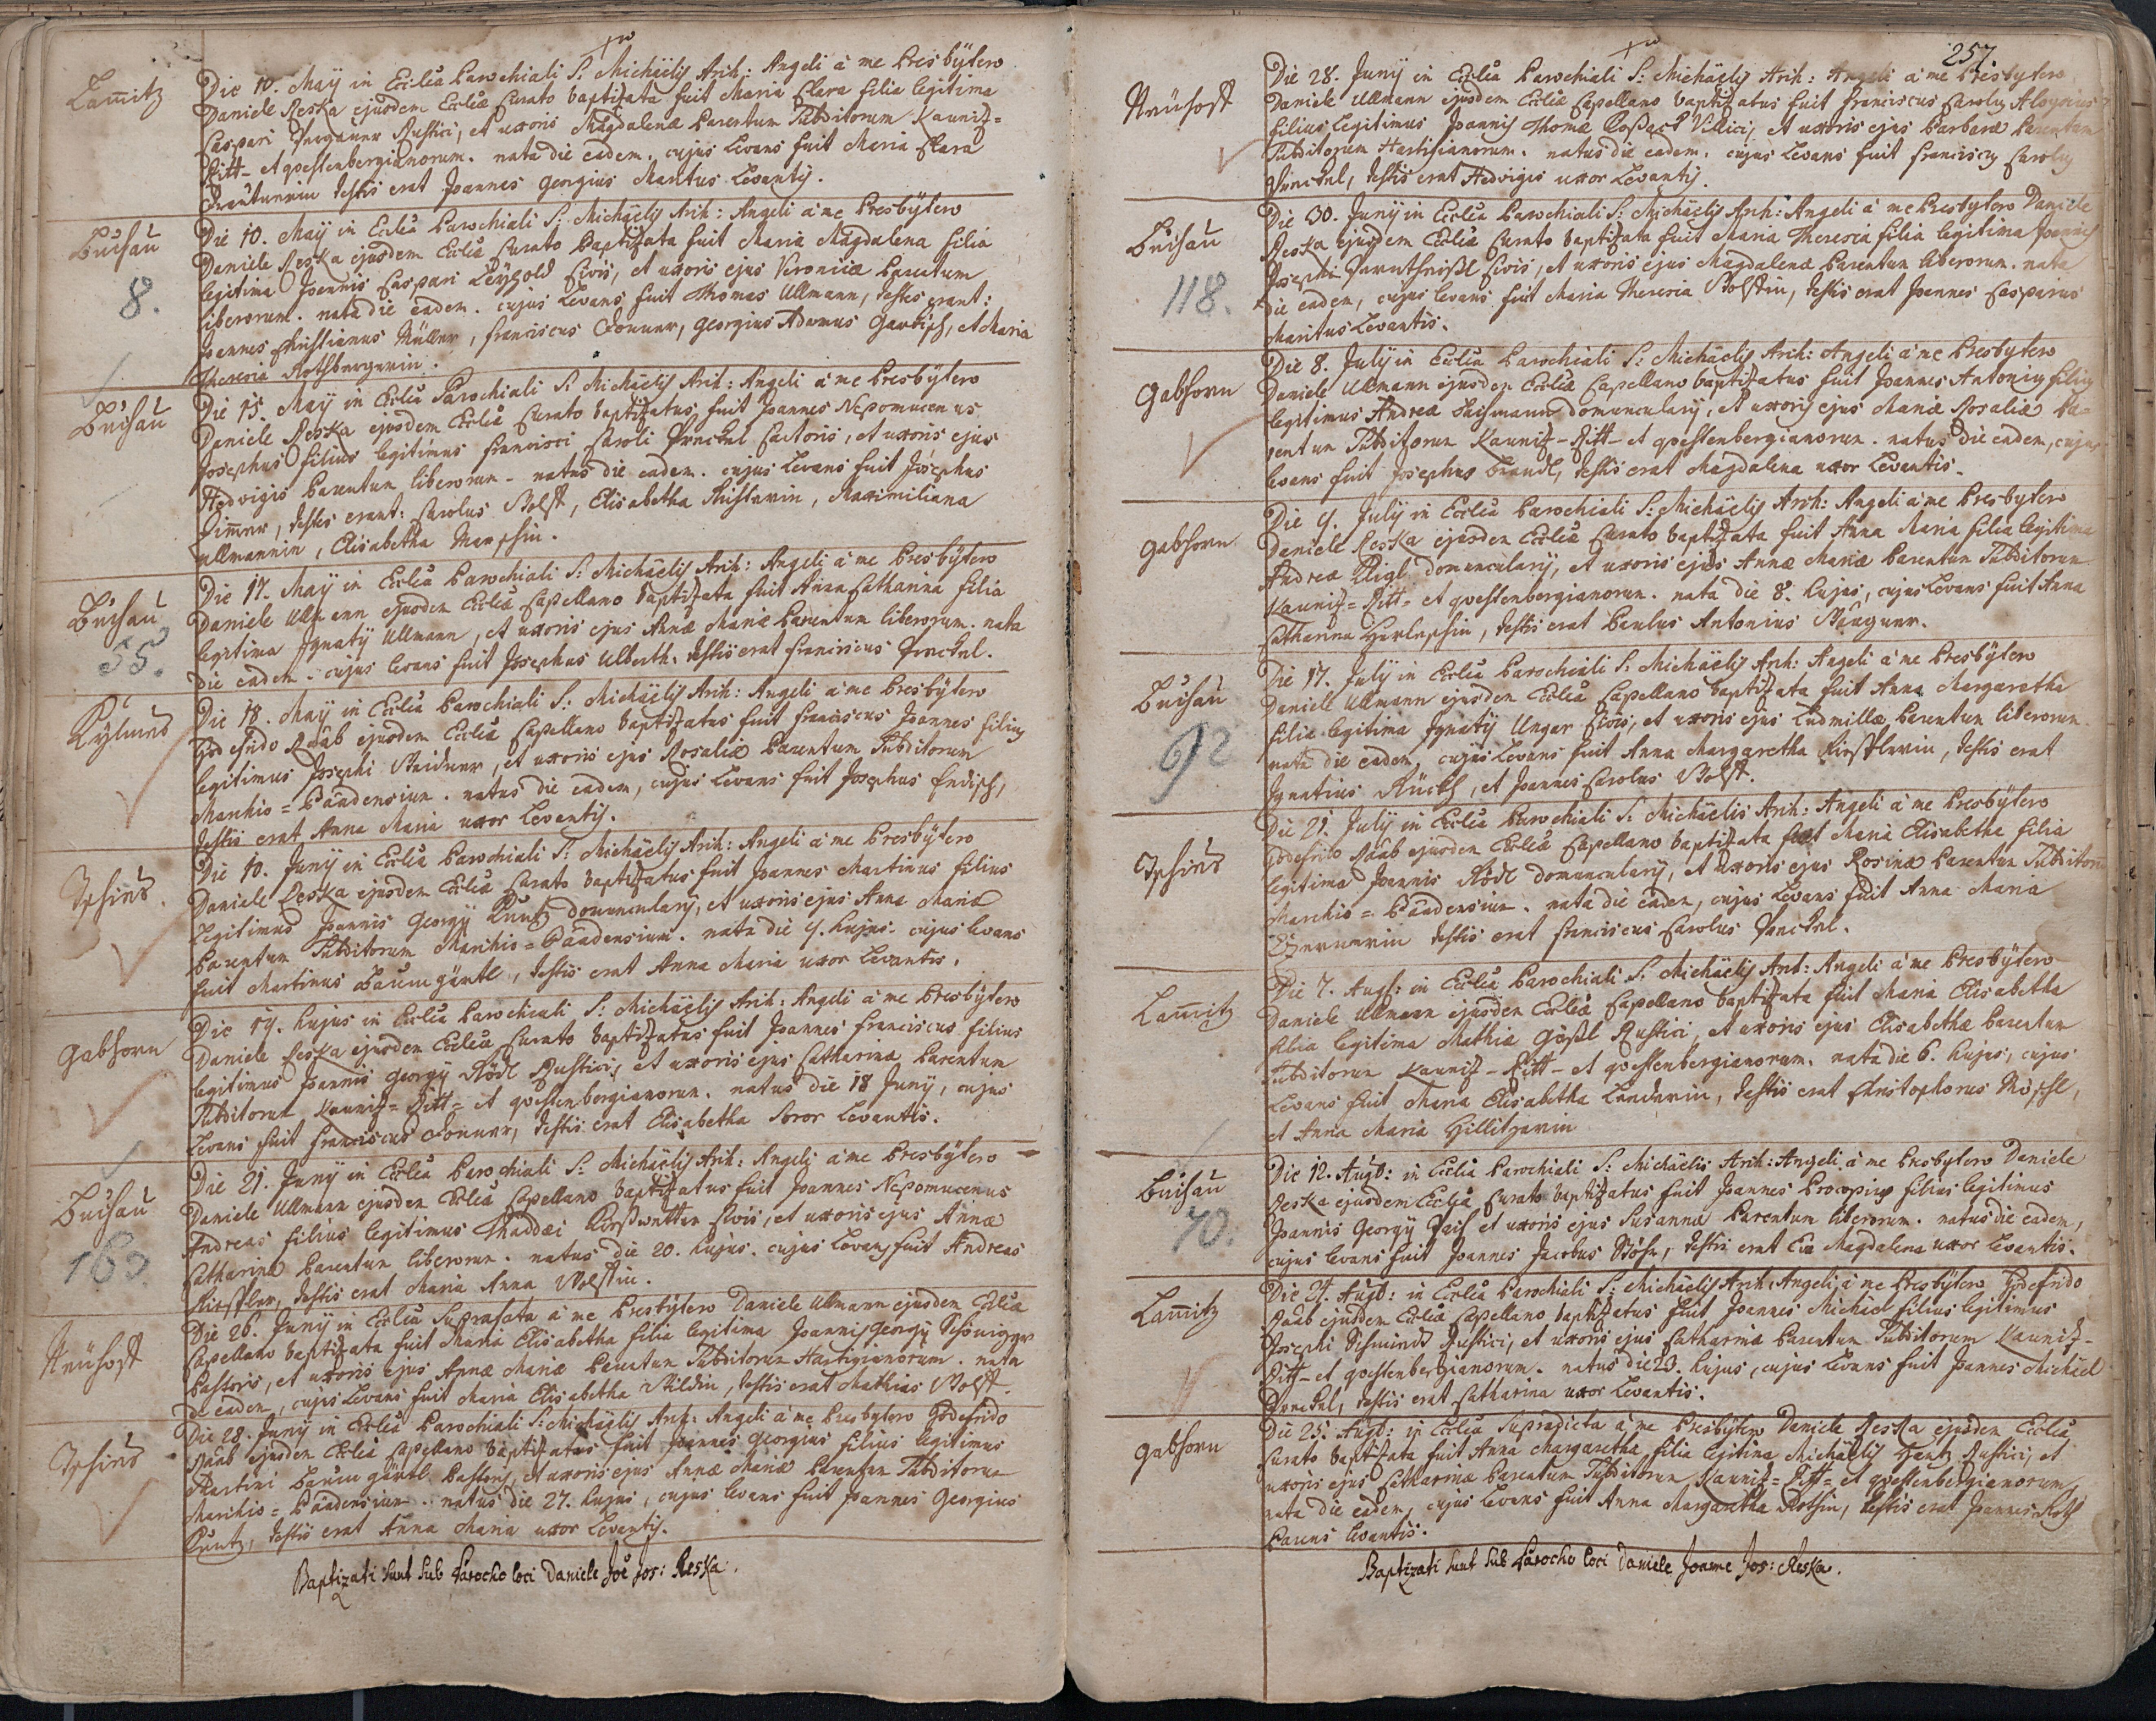 Lam̄itz
Die 10. Maÿ in Eccl̄ia Parochiali S: Michäelis Arch: Angeli à me Presbÿtero
Daniele Reska ejusdem Eccl̄iæ Curato baptizata fuit Maria Clara filia legitima
Caspari Rustici, et uxoris Magdalenæ Parentum Subditorum Kauniz=
Ritt- et qvestenbergianorum. nata die eadem. cujus Levans fuit Maria Clara
testis erat Joannes georgius Maritus Levantis.
Buchau
8.
Die 10. Maÿ in Eccl̄ia Parochiali S: Michäelis Arch: Angeli à me Presbÿtero
Daniele Reska ejusdem Eccl̄iæ Curato baptizata fuit Maria Magdalena filia
legitima Joannis Caspari Civis, et uxoris ejus Veronicæ Parentum
liberorum. nata die eadem. cujus Levans fuit Thomas Ullmann, testes erant:
Joannes Christianus Müller, franciscus Donner, georgius Adamus et Maria
Theresia Rothbergerin.
Buchau
Die 15. Maÿ in Eccl̄ia Parochiali S: Michäelis Arch: Angeli à me Presbÿtero
Daniele Reska ejusdem Eccl̄iæ Curato baptizatus fuit Joannes Nepomucenus
Josephus filius legitimus francisci Caroli et uxoris ejus
Hedvigis Parentum liberorum. natus die eadem. cujus Levans fuit Josephus
testes erant: Carolus Wolff, Elisabetha Maximiliana
Ullmannin, Elisabetha
Buchau
55.
Die 17. Maÿ in Eccl̄ia Parochiali S: Michäelis Arch: Angeli à me Presbÿtero
Daniele Ullmann ejusdem Eccl̄iæ Capellano baptizata fuit Anna Catharina filia
legitima Jgnatÿ Ullmann, et uxoris ejus Annæ Mariæ Parentum liberorum. nata
die eadem. cujus levans fuit Josephus testis erat franciscus
Die 18. Maÿ in Eccl̄ia Parochiali S: Michäelis Arch: Angeli à me Presbÿtero
Godefrido Raab ejusdem Eccl̄iæ Capellano baptizatus fuit franciscus Joannes filius
legitimus Josephi et uxoris ejus Rosaliæ Parentum Subditorum
Marchio=Baadensium. natus die eadem, cujus Levans fuit Josephus
testis erat Anna Maria uxor Levantis.
Die 10. Junÿ in Eccl̄ia Parochiali S: Michäelis Arch: Angeli à me Presbÿtero
Daniele Reska ejusdem Eccl̄iæ Curato baptizatus fuit Joannes Martinus filius
Legitimus Joannis georgÿ Kuntz domuncularÿ, et uxoris ejus Annæ Mariæ
Parentum Subditorum Marchio=Baadensium. nata die 9. hujus. cujus levans
fuit Martinus Baumgärtl, testis erat Anna Maria uxor Levantis.
gabhorn
Die 19. hujus in Eccl̄ia Parochiali S: Michäelis Arch: Angeli à me Presbÿtero
Daniele Reska ejusdem Eccl̄iæ Curato baptizatus fuit Joannes franciscus filius
legitimus Joannis georgÿ Rödl Rustici, et uxoris ejus Catharinæ Parentum
Subditorum Kauniz=Ritt= et qvestenbergianorum. natus die 18 Junÿ, cujus
Levans fuit franciscus Donner, testis erat Elisabetha Soror Levantis.
Buchau
163.
Die 21. Junÿ in Eccl̄ia Parochiali S: Michäelis Arch: Angeli à me Presbÿtero
Daniele Ullmann ejusdem Eccl̄iæ Capellano baptizatus fuit Joannes Nepomucenus
Andreas filius legitimus Thaddæi Civis, et uxoris ejus Annæ
Catharinæ Parentum liberorum. natus die 20. hujus. cujus Levans fuit Andreas
testis erat Maria Anna Wolffin.
Die 26. Junÿ in Eccl̄ia Suprafata à me Presbÿtero Daniele Ullmann ejusdem Eccl̄iæ
Capellano baptizata fuit Maria Elisabetha filia legitima Joannis georgÿ
Pastoris, et uxoris ejus Annæ Mariæ Parentum Subditorum Hartigianorum. nata
die eadem, cujus Levans fuit Maria Elisabetha testis erat Mathias Wolff.
Die 28. Junÿ in Eccl̄ia Parochiali S: Michäelis Arch: Angeli à me Presbytero Godefrido
Raab ejusdem Eccl̄iæ Capellano baptizatus fuit Joannes georgius filius legitimus
Martini Baumgärtl Pastoris, et uxoris ejus Annæ Mariæ Parentum Subditorum
Marchio=Baadensium. natus die 27. hujus, cujus levans fuit Joannes Georgius
Kuntz, testis erat Anna Maria uxor Levantis.
Baptizati sunt sub Parocho loci Daniele Joē Jos: Reska.
257.
Die 28. Junÿ in Eccl̄ia Parochiali S: Michäelis Arch: Angeli à me Presbytero
Daniele Ullmann ejusdem Eccl̄iæ Capellano baptizatus fuit franciscus Carolus Aloysius
filius Legitimus Joannis Thomæ Villici, et uxoris ejus Barbaræ Parentum
Subditorum Hartigianorum. natus die eadem. cujus Levans fuit franciscus Carolus
testis erat Hedvigis uxor Levantis.
Buchau
118.
Die 30. Junÿ in Eccl̄ia Parochiali S: Michäelis Arch: Angeli à me Presbytero Daniele
Reska ejusdem Eccl̄iæ Curato baptizata fuit Maria Theresia filia legitima Joannis
Josephi Civis, et uxoris ejus Magdalenæ Parentum liberorum. nata
die eadem, cujus levans fuit Maria Theresia Wolffin, testis erat Joannes Casparus
Maritus Levantis.
gabhorn
Die 8. Julÿ in Eccl̄ia Parochiali S: Michäelis Arch: Angeli à me Presbÿtero
Daniele Ullmann ejusdem Eccl̄iæ Capellano baptizatus fuit Joannes Antonius filius
legitimus Andreæ domuncularÿ, et uxoris ejus Mariæ Rosaliæ Pa=
rentum Subditorum Kauniz-Ritt- et qvestenbergianorum. natus die eadem, cujus
levans fuit Josephus Brandl, testis erat Magdalena uxor Levantis.
gabhorn
Die 9. Julÿ in Eccl̄ia Parochiali S: Michäelis Arch: Angeli à me Presbytero
Daniele Reska ejusdem Eccl̄iæ Curato baptizata fuit Anna Maria filia legitima
Andreæ domuncularÿ, et uxoris ejus Annæ Mariæ Parentum Subditorum
Kauniz=Ritt= et qvestenbergianorum. nata die 8. hujus, cujus Levans fuit Anna
Catharina testis erat Paulus Antonius Wagner.
Buchau
92
Die 17. Julÿ in Eccl̄ia Parochiali S: Michäelis Arch: Angeli à me Presbÿtero
Daniele Ullmann ejusdem Eccl̄iæ Capellano baptizata fuit Anna Margaretha
filia legitima Jgnatÿ Unger Civis, et uxoris ejus Ludmillæ Parentum liberorum.
nata die eadem, cujus Levans fuit Anna Margaretha testis erat
Jgnatius et Joannes Carolus Wolff.
Die 21. Julÿ in Eccl̄ia Parochiali S: Michäelis Arch: Angeli à me Presbÿtero
Godefrido Raab ejusdem Eccl̄iæ Capellano baptizata fuit Maria Elisabetha filia
legitima Joannis Rödl domuncularÿ, et uxoris ejus Rosinæ Parentum Subditorū
Marchio=Baadensium. nata die eadem, cujus Levans fuit Anna Maria
testis erat franciscus Carolus
Lam̄itz
Die 7. Augt: in Eccl̄ia Parochiali S: Michäelis Arch: Angeli à me Presbÿtero
Daniele Ullmann ejusdem Eccl̄iæ Capellano baptizata fuit Maria Elisabetha
filia legitima Mathiæ Rustici, et uxoris ejus Elisabethæ Parentum
Subditorum Kauniz-Ritt- et qvestenbergianorum. nata die 6. hujus, cujus
Levans fuit Maria Elisabetha testis erat Christophorus
et Anna Maria Hillitzerin
Buchau
70.
Die 12. Augt: in Eccl̄ia Parochiali S: Michäelis Arch: Angeli à me Presbytero Daniele
Reska ejusdem Eccl̄iæ Curato baptizatus fuit Joannes Procopius filius legitimus
Joannis Georgÿ et uxoris ejus Susannæ Parentum liberorum. natus die eadem,
cujus levans fuit Joannes Jacobus testis erat Eva Magdalena uxor levantis.
Lam̄itz
Die 24. Augt: in Eccl̄ia Parochiali S: Michäelis Arch: Angeli à me Presbÿtero Godefrido
Raab ejusdem Eccl̄iæ Capellano baptizatus fuit Joannes Michäel filius legitimus
Josephi Schmindt Rustici, et uxoris ejus Catharinæ Parentum Subditorum Kauniz-
Ritt- et qvestenbergianorum. natus die 23. hujus, cujus Levans fuit Joannes Michäel
testis erat Catharina uxor Levantis.
gabhorn
Die 25. Augt: in Eccl̄ia Supradicta à me Presbÿtero Daniele Reska ejusdem Eccl̄iæ
Curato baptizata fuit Anna Margaretha filia legitima Michäelis Rustici, et
uxoris ejus Catharinæ Parentum Subditorum Kauniz=Ritt= et qvestenbergianorum,
nata die eadem, cujus Levans fuit Anna Margaretha Rothin, testis erat Joannes Roth
Parens levantis.
Baptizati sunt sub Parocho loci Daniele Joanne Jos: Reska.